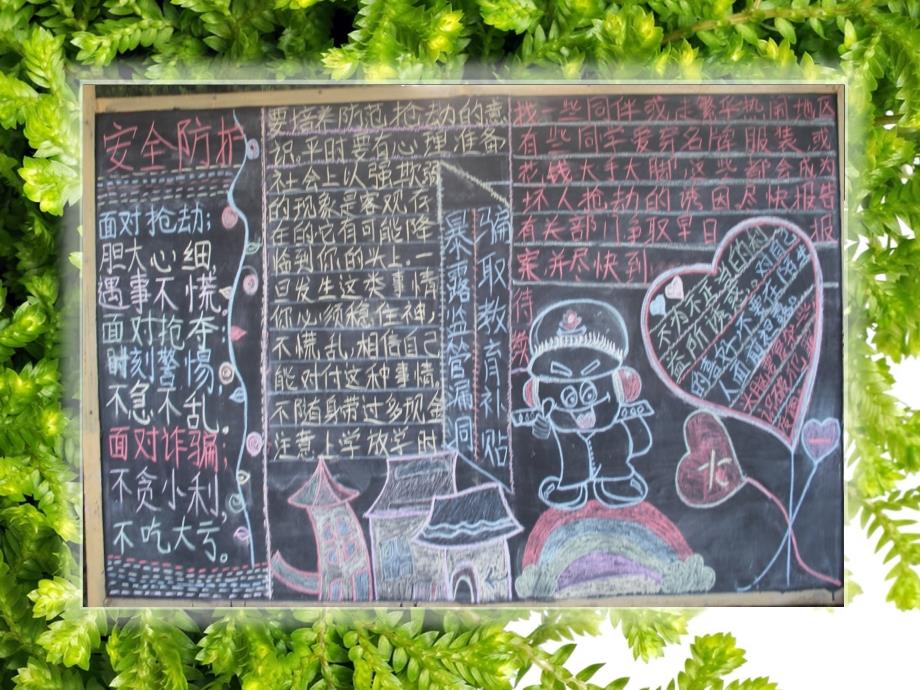 安全防护
面对抢劫：
胆大心细
遇事不慌，
面对抢夺：
时刻警惕
不急不乱，
面对诈骗：
不贪小利，
不吃大亏。
要培养防范抢劫的意
识。平时要有心理准备
社会上以强欺弱
的现象是客观存
在的它有可能降
临到你的头上。一
旦发生这类事情
你必须稳住神，
不慌乱，相信自己
能对付这种事情。
不随身带过多现金
注意上学放学时
暴露监管漏洞
骗取教育补贴
找一些同伴或走繁华热闹地区
有些同学爱穿名牌服装，或
花钱大手大脚，这些都会成为
坏人抢劫的诱因尽快报告
有关部门争取早日 报
案，并尽快到
待续
不为不正当的利
益所诱惑。对自己
的喜好不要在陌生
人面前